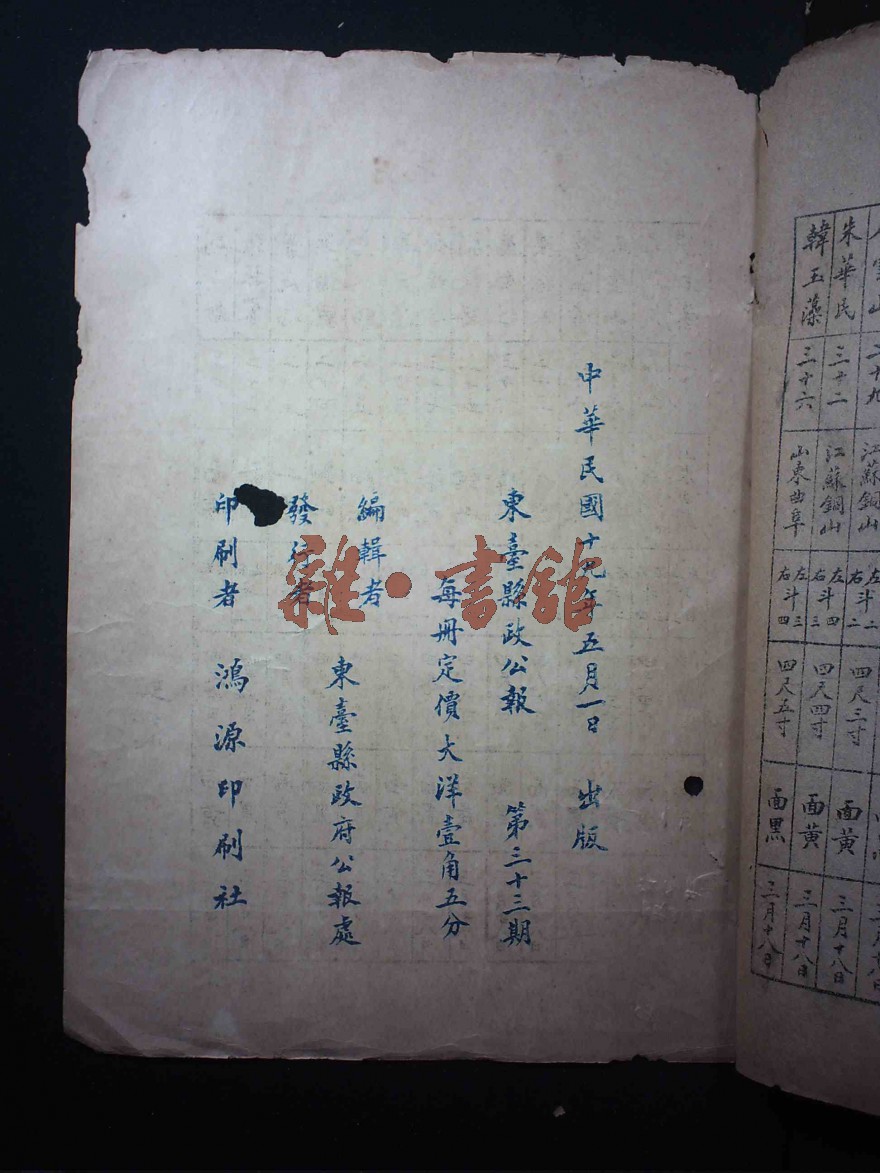 韓玉藻 三十六 山東曲阜 左斗三 右斗四 四尺五寸 面黑 三月十八日
朱華民 三十二 江蘇銅山 左斗四 右斗三 四尺四寸 面黃 三月十八日
二十九 江蘇銅山 左斗二 右斗二 四尺三寸 面黃 三月十八日
中華民國十九年五月一日 出版
東臺縣政公報 第三十三期
每冊定價大洋壹角五分
編輯者
東臺縣政府公報處
發行者
印刷者 鴻源印刷社
雜·書館